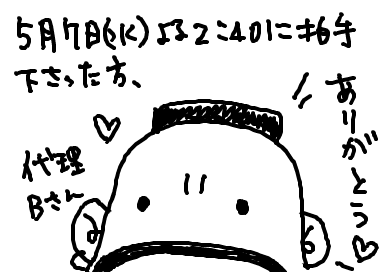 5月7日(水)よる2:40に拍手
下さった方、
ありがとう♡
代理
Bさん